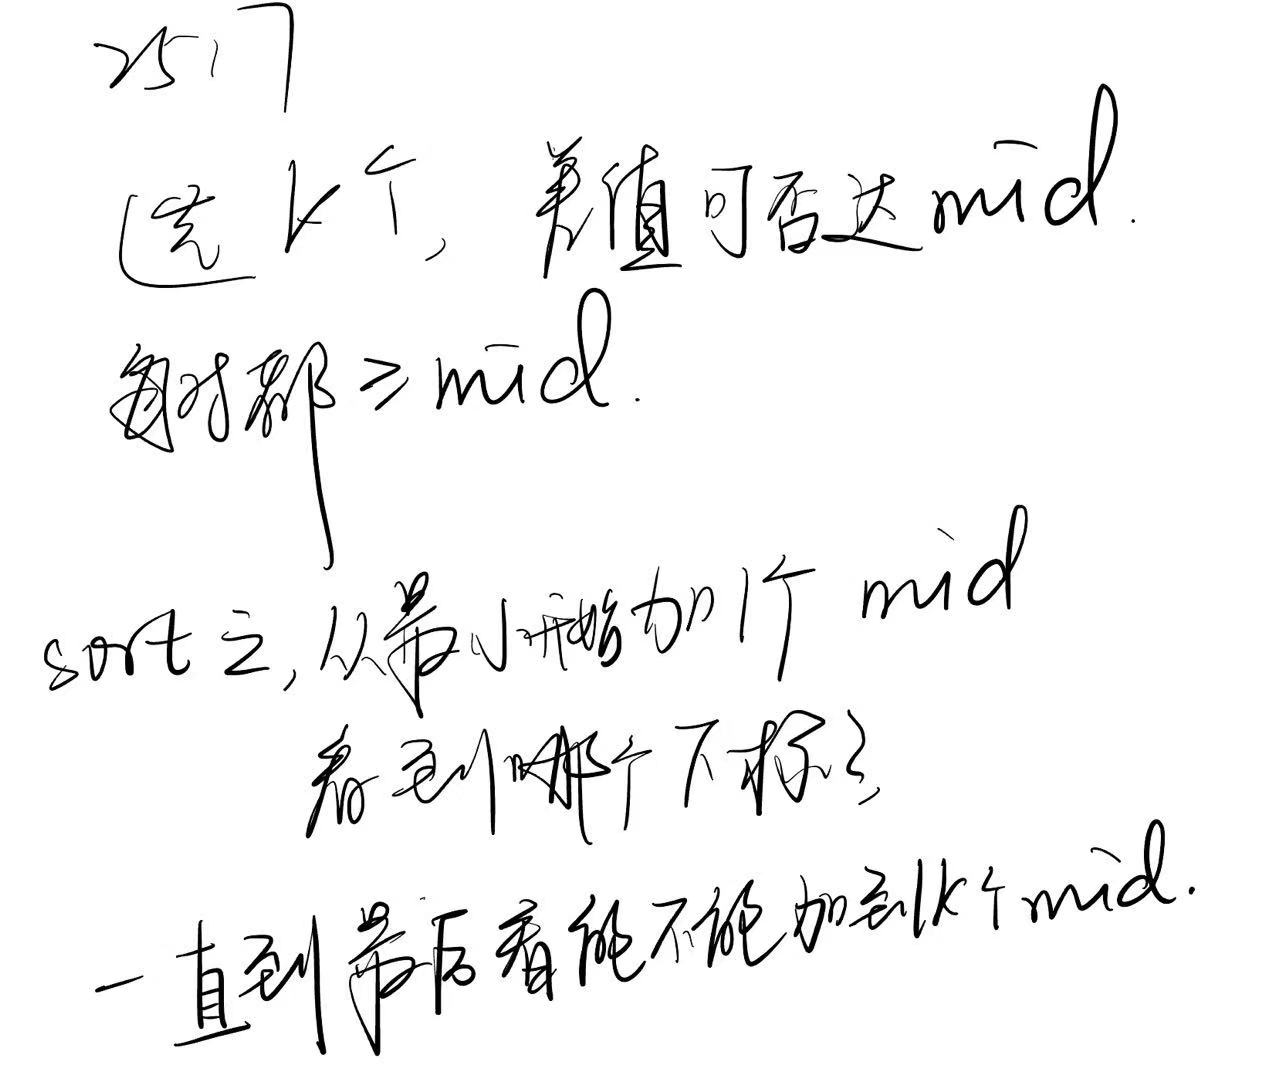 25.7
选k个, 差值可否达mid.
每对都≥mid.
sort之, 从最小开始加1个mid
看到哪个下标了,
一直到最后看能不能加到k个mid.